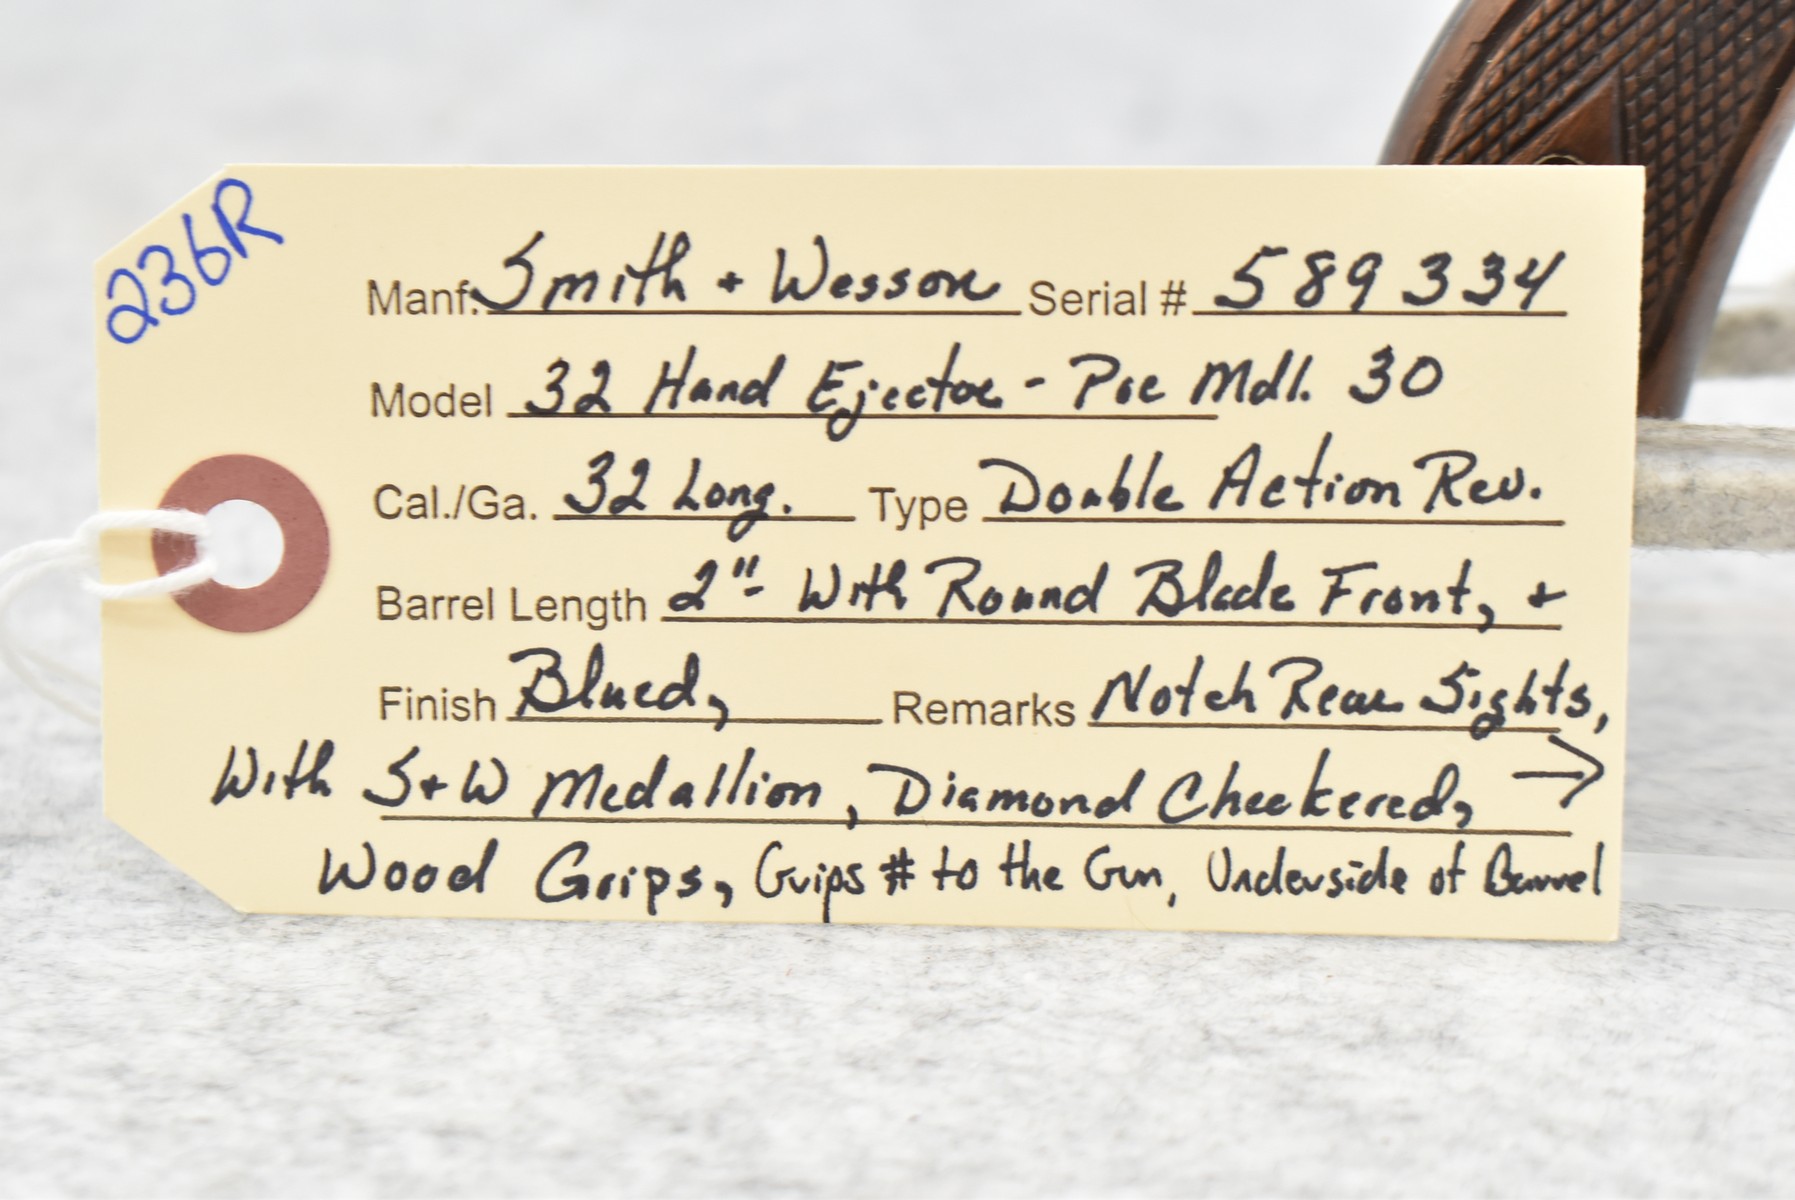 236R
Manf. Smith + Wesson Serial # 589334
Model 32 Hand Ejector - Pre Mdl. 30
Cal./Ga. 32 Long. Type Double Action Rev.
Barrel Length 2" - With Round Blade Front, +
Finish Blued, Remarks Notch Rear Sights,
With S+W Medallion, Diamond Checkered, →
Wood Grips, Grips # to the Gun, Underside of Barrel